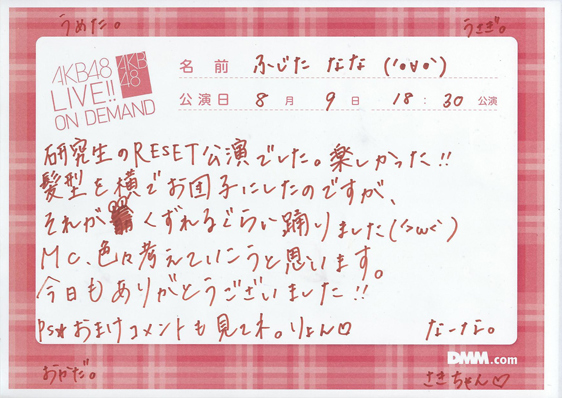 うめた。
うさぎ。
AKB48
LIVE!!
ON DEMAND
AKB
48
名前 ふじた なな (´•∀•`)
公演日 8月 9日 18:30公演
研究生のRESET公演でした。楽しかった!!
髪型を横でお団子にしたのですが、
それが くずれるぐらい踊りました(´>ω<`)
MC、色々考えていこうと思います。
今日もありがとうございました!!
PS★おまけコメントも見てネ。りょん♡ なーな。
DMM.com
おかだ。
さきちゃん♡